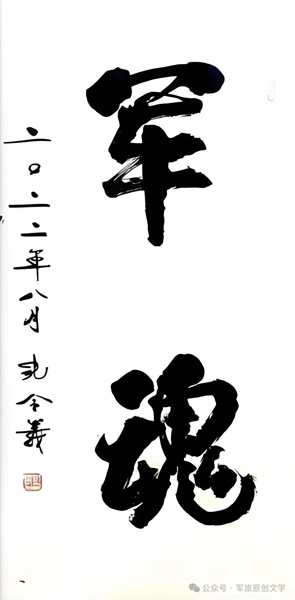 军魂
二〇二二年八月
公众号·军旅原创文学